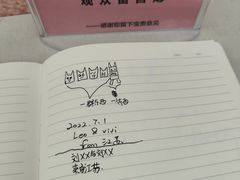 观众留言处
——感谢您留下宝贵意见
2022.7.1
Leo & vivi
from 江苏
刘XX与刘XX
来自江苏